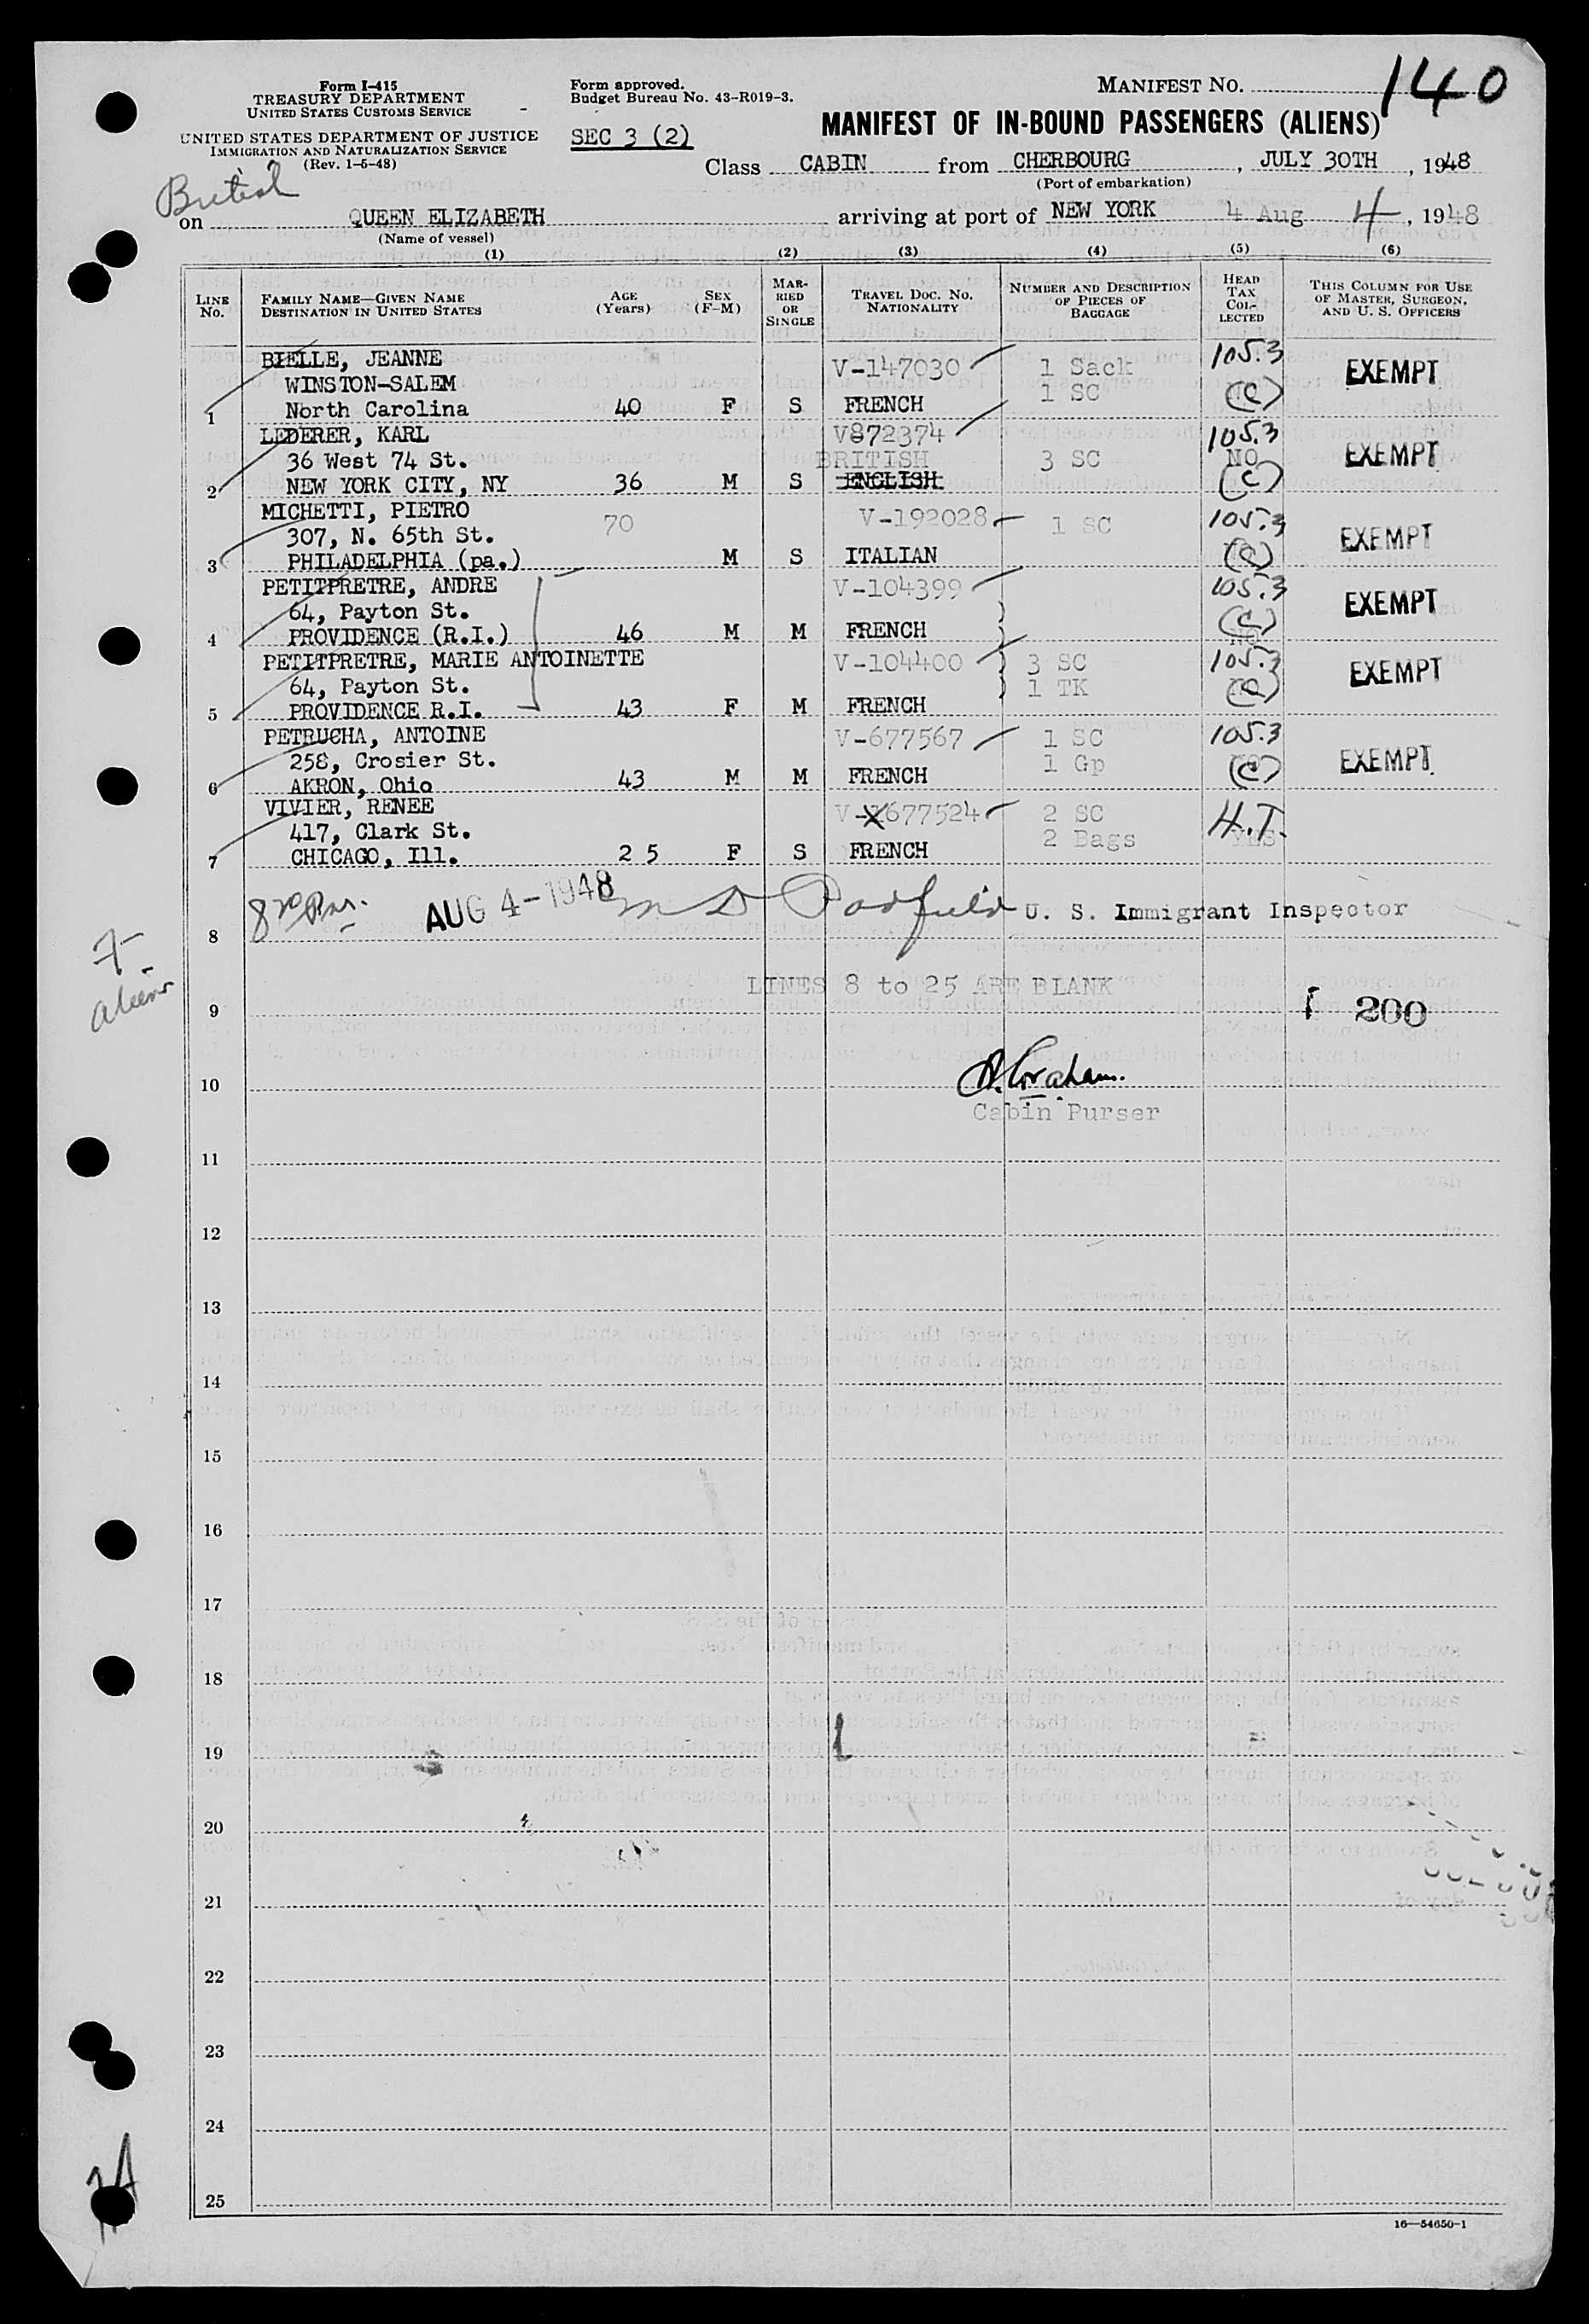 Form I-415
TREASURY DEPARTMENT
UNITED STATES CUSTOMS SERVICE
UNITED STATES DEPARTMENT OF JUSTICE
IMMIGRATION AND NATURALIZATION SERVICE
(Rev. 1-5-48)
Form approved.
Budget Bureau No. 43-R019-3.
SEC 3 (2)
MANIFEST NO. 140
MANIFEST OF IN-BOUND PASSENGERS (ALIENS)
Class CABIN from CHERBOURG, JULY 30TH, 1948
(Port of embarkation)
British
on QUEEN ELIZABETH arriving at port of NEW YORK 4 Aug 4, 1948
(Name of vessel)
(1) (2) (3) (4) (5) (6)
LINE No. FAMILY NAME—GIVEN NAME DESTINATION IN UNITED STATES AGE (Years) SEX (F-M) MARRIED OR SINGLE TRAVEL DOC. NO. NATIONALITY NUMBER AND DESCRIPTION OF PIECES OF BAGGAGE HEAD TAX COLLECTED THIS COLUMN FOR USE OF MASTER, SURGEON, AND U. S. OFFICERS
BIELLE, JEANNE V-147030 1 Sack 105.3 EXEMPT
WINSTON-SALEM 1 SC
1 North Carolina 40 F S FRENCH (C)
LEDERER, KARL V872374 105.3
36 West 74 St. BRITISH 3 SC NO EXEMPT
2 NEW YORK CITY, NY 36 M S ENGLISH (C)
MICHETTI, PIETRO 70 V-192028 1 SC 105.3
307, N. 65th St. EXEMPT
3 PHILADELPHIA (pa.) M S ITALIAN (C)
PETITPRETRE, ANDRE V-104399 105.3
64, Payton St. EXEMPT
4 PROVIDENCE (R.I.) 46 M M FRENCH (C) NO
PETITPRETRE, MARIE ANTOINETTE V-104400 3 SC 105.3
64, Payton St. 1 TK EXEMPT
5 PROVIDENCE R.I. 43 F M FRENCH (C)
PETRUCHA, ANTOINE V-677567 1 SC 105.3
258, Crosier St. 1 Gp EXEMPT
6 AKRON, Ohio 43 M M FRENCH (C)
VIVIER, RENEE V-677524 2 SC H.T.
417, Clark St. 2 Bags YES
7 CHICAGO, Ill. 25 F S FRENCH
AUG 4-1948 U. S. Immigrant Inspector
8
7
aliens
LINES 8 to 25 ARE BLANK
9 200
A. Graham.
10
Cabin Purser
11
12
13
14
15
16
17
18
19
20
21
22
23
24
25
16—54650-1